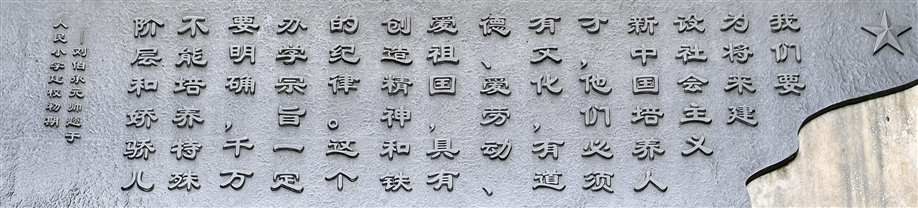 我们要
为将来建
设社会主义
新中国培养人
才，他们必须
有文化，有道
德、爱劳动、
爱祖国，具有
创造精神和铁
的纪律。这个
办学宗旨一定
要明确，千万
不能培养特殊
阶层和娇骄儿
——刘伯承元帅题于
人民小学建校初期